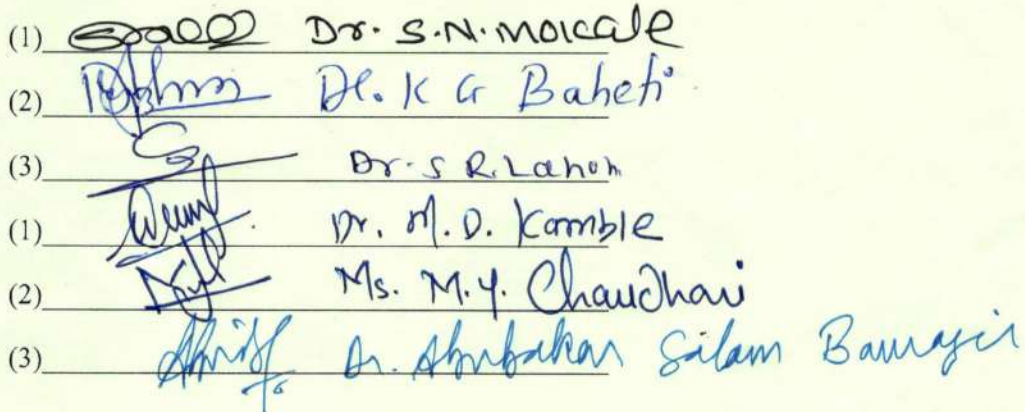 (1) Dr. S.N. Mokale
(2) Dr. K G Baheti
(3) Dr. S R. Lahoti
(1) Dr. M.D. Kamble
(2) Ms. M.Y. Chaudhari
(3) Dr. Abubakar Salam Bawazir